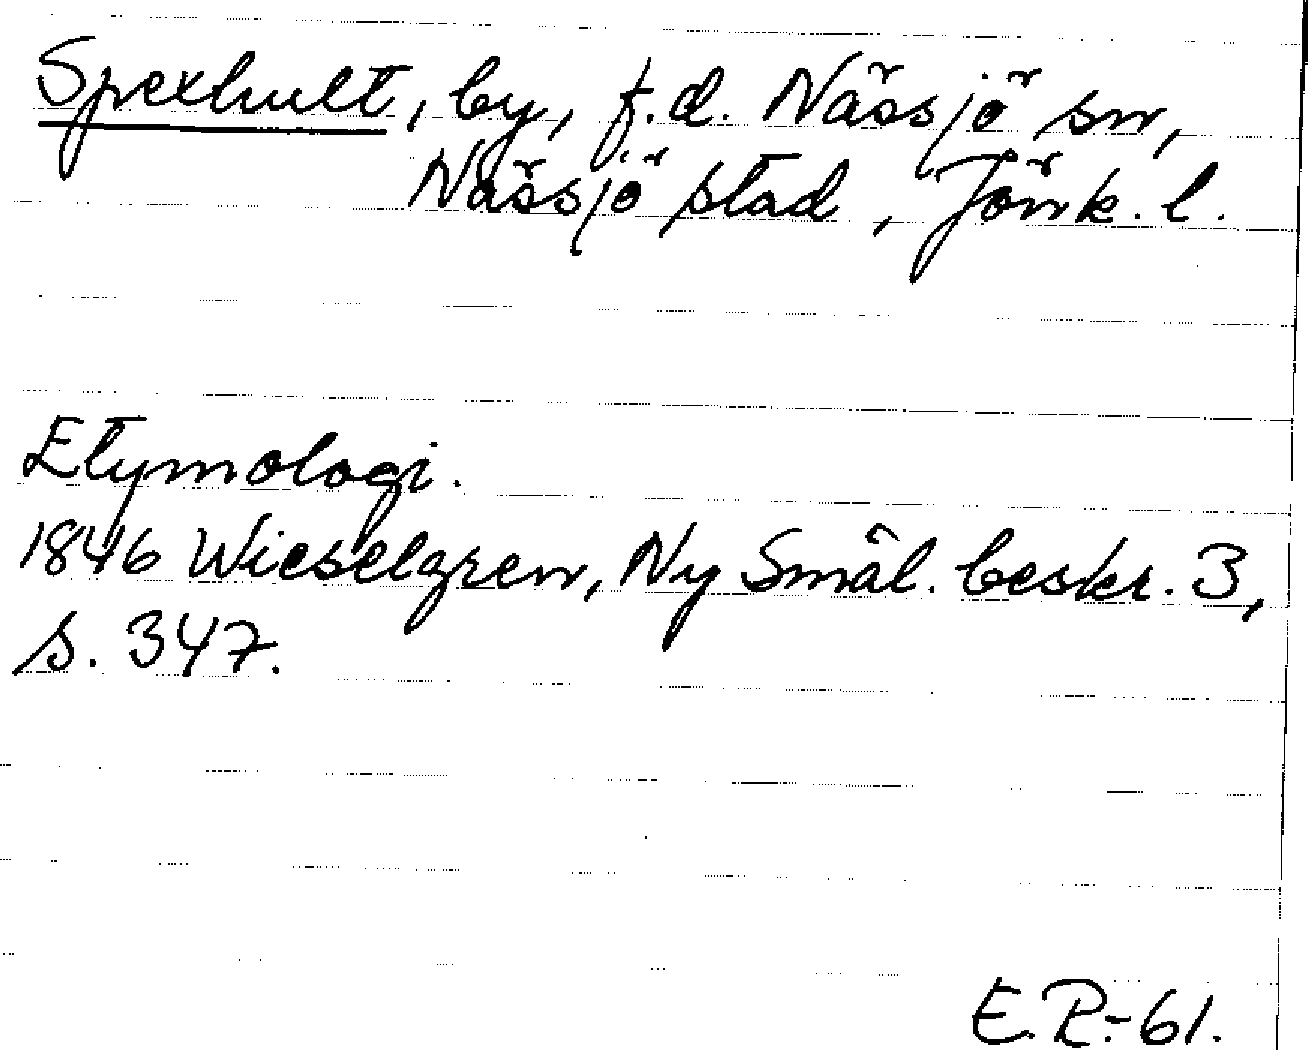 Spexhult, by, f.d. Nässjö sn,
Nässjö stad, Jönk. l.
Etymologi.
1846 Wieselgren, Ny Smål. beskr. 3,
s. 347.
E.R.-61.